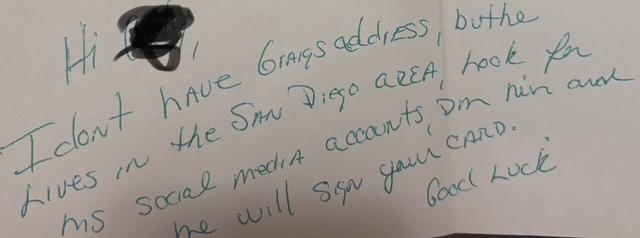 Hi ,
I dont have Graigs address, buthe
Lives in the San Diego area, Look for
ms social media accounts, Dm him and
he will sign your card.
Good Luck